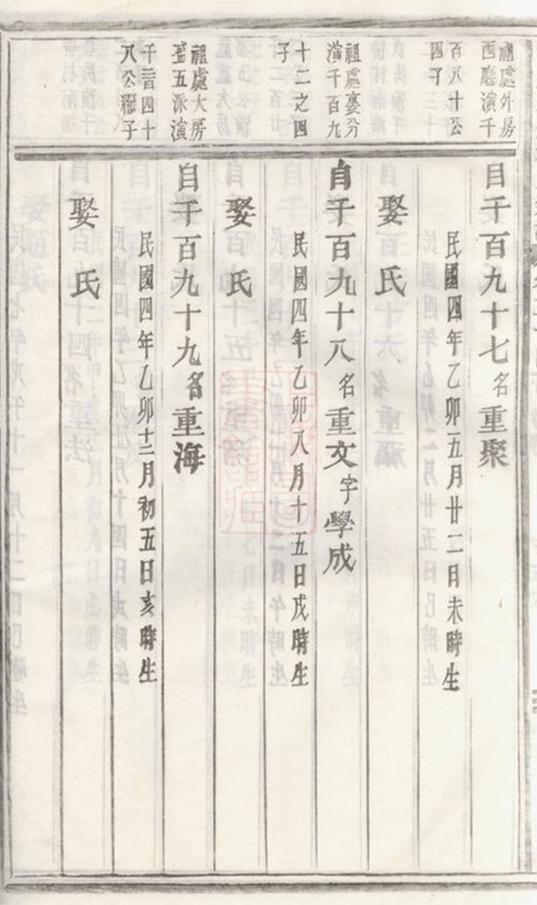 祖處外房
西廳演千
百八十公
四子
自千百九十七名重聚
民國四年乙卯五月廿二日未時生
娶氏
祖處婁分
演千百九
十二之四
子
自千百九十八名重文字學成
民國四年乙卯八月十五日戌時生
娶氏
祖處大房
盛五派演
千百四十
八公繼子
自千百九十九名重海
民國四年乙卯十二月初五日亥時生
娶氏